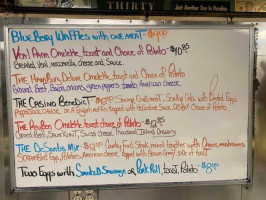 THIRTY
Just Another Day in Paradise
Blue Berry Waffles with one meat $9.00
Veal Parm Omelette, toast and Choice of Potato $10.85
Breaded Veal, mozzarella, cheese and Sauce.
The Omelette toast and Choice of Potato
Ground Beef, Bacon, onions, green peppers, tomato, American Cheese.
The Casino Benedict
Pepperjack cheese, on a English muffin, topped with Hollandaise Sauce,
The Reuben Omelette, toast, choice of Potato $12.85
Corned Beef, Sauer Kraut, Swiss cheese, Thousand Island Dressing
The DeSantis Mix Country Fried Steak, mixed together with Onions, mushrooms,
Scrambled Eggs, Potatoes, American cheese, topped with Brown Gravy side of toast
Two Eggs with Smoked Sausage or Pork Roll, toast, Potato